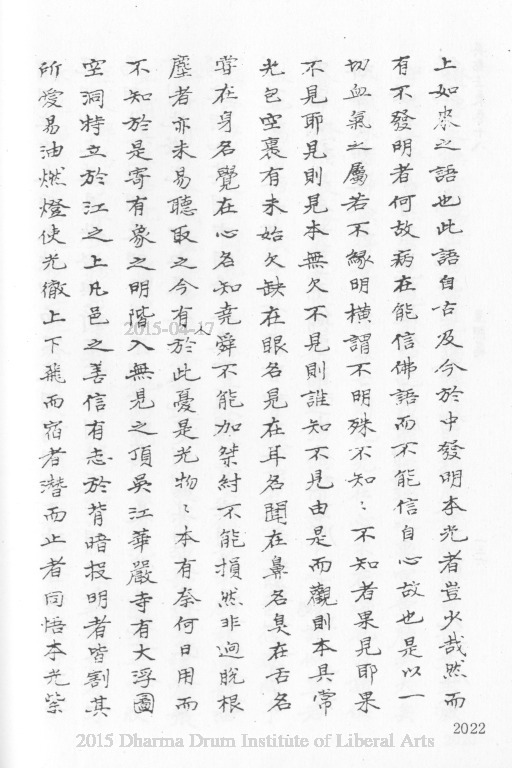 上如來之語也此語自古及今於中發明本光者豈少哉然而
有不發明者何故病在能信佛語而不能信自心故也是以一
切血氣之屬若不緣明橫謂不明殊不知〻不知者果見耶果
不見耶見則見本無欠不見則誰知不見由是而觀則本具常
光包空裹有未始欠缺在眼名見在耳名聞在鼻名臭在舌名
嘗在身名覺在心名知堯舜不能加桀紂不能損然非迥脫根
塵者亦未易聽取之今有人於此憂是光物〻本有奈何日用而
不知於是寄有象之明階入無見之頂吳江華嚴寺有大浮圖
空洞特立於江之上凡邑之善信有志於背暗投明者皆割其
所愛易油燃燈使光徹上下飛而宿者潛而止者同悟本光紫
2022
2015-04-17
2015 Dharma Drum Institute of Liberal Arts